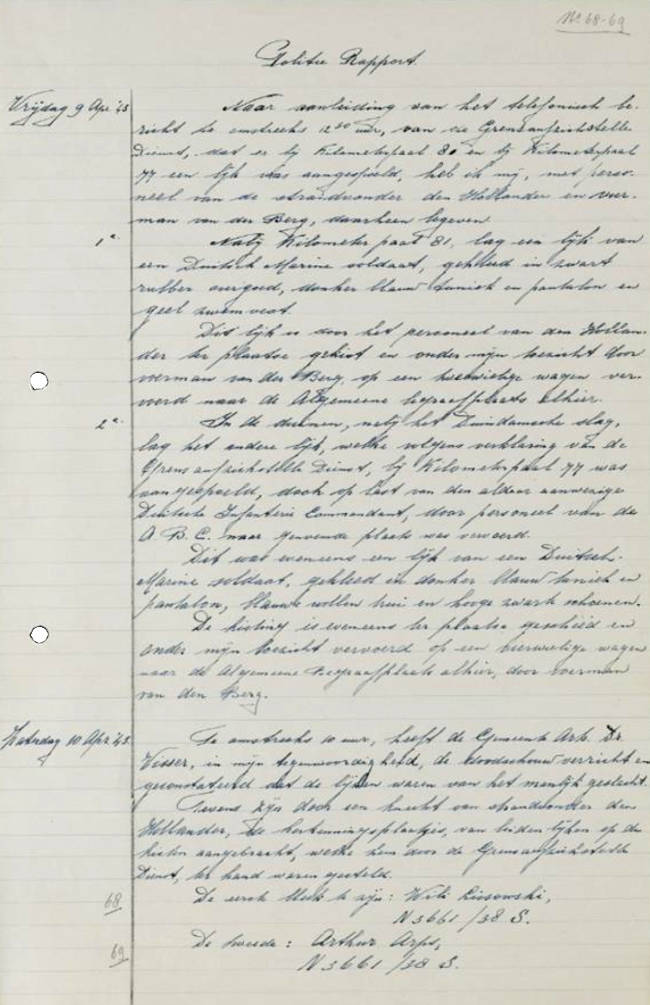 No 68-69
Politie Rapport.
Vrijdag 9 Apr. '43
Naar aanleiding van het telefonisch be-
richt te omstreeks 12 uur, van de Grensaufsichtstelle
Dienst, dat er bij Kilometerpaal 80 en bij Kilometerpaal
77 een lijk was aangespoeld, heb ik mij, met perso-
neel van de strandvonder den Hollander en voer-
man van der Berg, daarheen begeven
1e Nabij Kilometer paal 81, lag een lijk van
een Duitsch Marine soldaat, gekleed in zwart
rubber overgoed, donker blauw tuniek en pantalon en
geel zwemvest.
Dit lijk is door het personeel van den Hollan-
der ter plaatse gekist en onder mijn toezicht door
voerman van der Berg, op een wagen ver-
voerd naar de Algemeene begraafplaats alhier.
2e In de duinen, nabij het Duindamsche slag,
lag het andere lijk, welke volgens verklaring van de
Grensaufsichtstelle Dienst, bij Kilometerpaal 77 was
aangespoeld, doch op last van den aldaar aanwezige
Duitsche Infanterie Commandant, door personeel van de
A. B. C. naar genoemde plaats was vervoerd.
Dit was eveneens een lijk van een Duitsch
Marine soldaat, gekleed in donker blauw tuniek en
pantalon, blauwe wollen trui en hooge zwarte schoenen.
De kisting is eveneens ter plaatse geschied en
onder mijn toezicht vervoerd op een vierwielige wagen
naar de Algemeene Begraafplaats alhier, door voerman
van den Berg.
Zaterdag 10 Apr. '43.
Te omstreeks 10 uur, heeft de Gemeente Arts Dr.
Visser, in mijn tegenwoordigheid, de doodschouw verricht en
geconstateerd dat de lijken waren van het manlijk geslacht.
Tevens zijn door een knecht van strandvonder den
Hollander, de herkenningsplaatjes, van beiden lijken op de
kisten aangebracht, welke hem door de Grensaufsichtstelle
Dienst, ter hand waren gesteld.
68 De eerste bleek te zijn: Willi Lissowski,
N 3661/38 S.
69 De tweede: Arthur Arps,
N 3661/38 S.